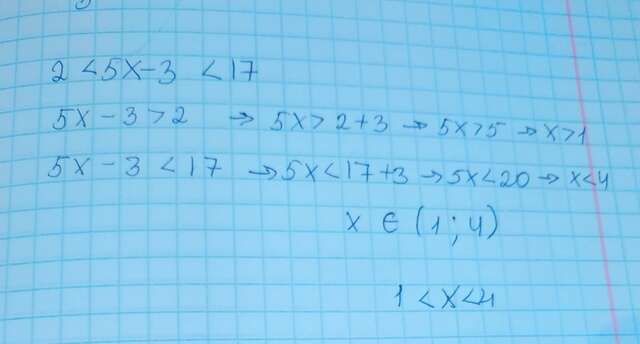 2 < 5x - 3 < 17
5x - 3 > 2 → 5x > 2 + 3 → 5x > 5 → x > 1
5x - 3 < 17 → 5x < 17 + 3 → 5x < 20 → x < 4
x ∈ (1; 4)
1 < x < 4